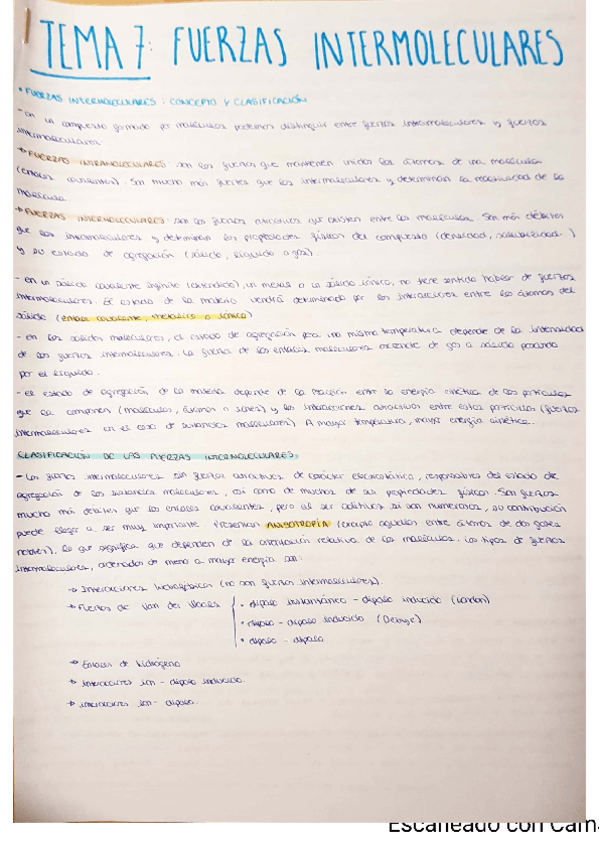 TEMA 7: FUERZAS INTERMOLECULARES
• FUERZAS INTERMOLECULARES: CONCEPTO Y CLASIFICACIÓN
- en un compuesto formado por moléculas podemos distinguir entre fuerzas intramoleculares y fuerzas
intermoleculares
→ FUERZAS INTRAMOLECULARES: son las fuerzas que mantienen unidos los átomos de una molécula
(enlaces covalentes). Son mucho más fuertes que las intermoleculares y determinan la reactividad de la
molécula.
→ FUERZAS INTERMOLECULARES: son las fuerzas atractivas que existen entre las moléculas. Son más débiles
que las intramoleculares y determinan las propiedades físicas del compuesto (densidad, solubilidad...)
y su estado de agregación (sólido, líquido o gas).
- en un sólido covalente infinito (extendido), un metal o un sólido iónico, no tiene sentido hablar de fuerzas
intermoleculares. El estado de la materia vendrá determinado por las interacciones entre los átomos del
sólido (enlace covalente, metálico o iónico)
- en los sólidos moleculares, el estado de agregación para una misma temperatura depende de la intensidad
de las fuerzas intermoleculares. La fuerza de los enlaces moleculares de gas a sólido pasando
por el líquido.
- el estado de agregación de la materia depende de la relación entre la energía cinética de las partículas
que la componen (moléculas, átomos o iones) y las interacciones atractivas entre estas partículas (fuerzas
intermoleculares en el caso de sustancias moleculares). A mayor temperatura, mayor energía cinética.
CLASIFICACIÓN DE LAS FUERZAS INTERMOLECULARES
- Las fuerzas intermoleculares son fuerzas atractivas de carácter electrostático, responsables del estado de
agregación de las sustancias moleculares, así como de muchas de sus propiedades físicas. Son fuerzas
mucho más débiles que los enlaces covalentes, pero al ser aditivas si son numerosas, su contribución
puede llegar a ser muy importante. Presentan ANISOTROPÍA (excepto aquellas entre átomos de dos gases
nobles), lo que significa que dependen de la orientación relativa de las moléculas. Los tipos de fuerzas
intermoleculares, ordenados de menor a mayor energía son:
→ Interacciones hidrofóbicas (no son fuerzas intermoleculares).
→ Fuerzas de Van der Waals { • dipolo instantáneo - dipolo inducido (London)
• dipolo - dipolo inducido (Debye)
• dipolo - dipolo
→ Enlaces de hidrógeno
→ interacciones ion - dipolo inducido.
→ interacciones ion - dipolo.
Escaneado con Cam